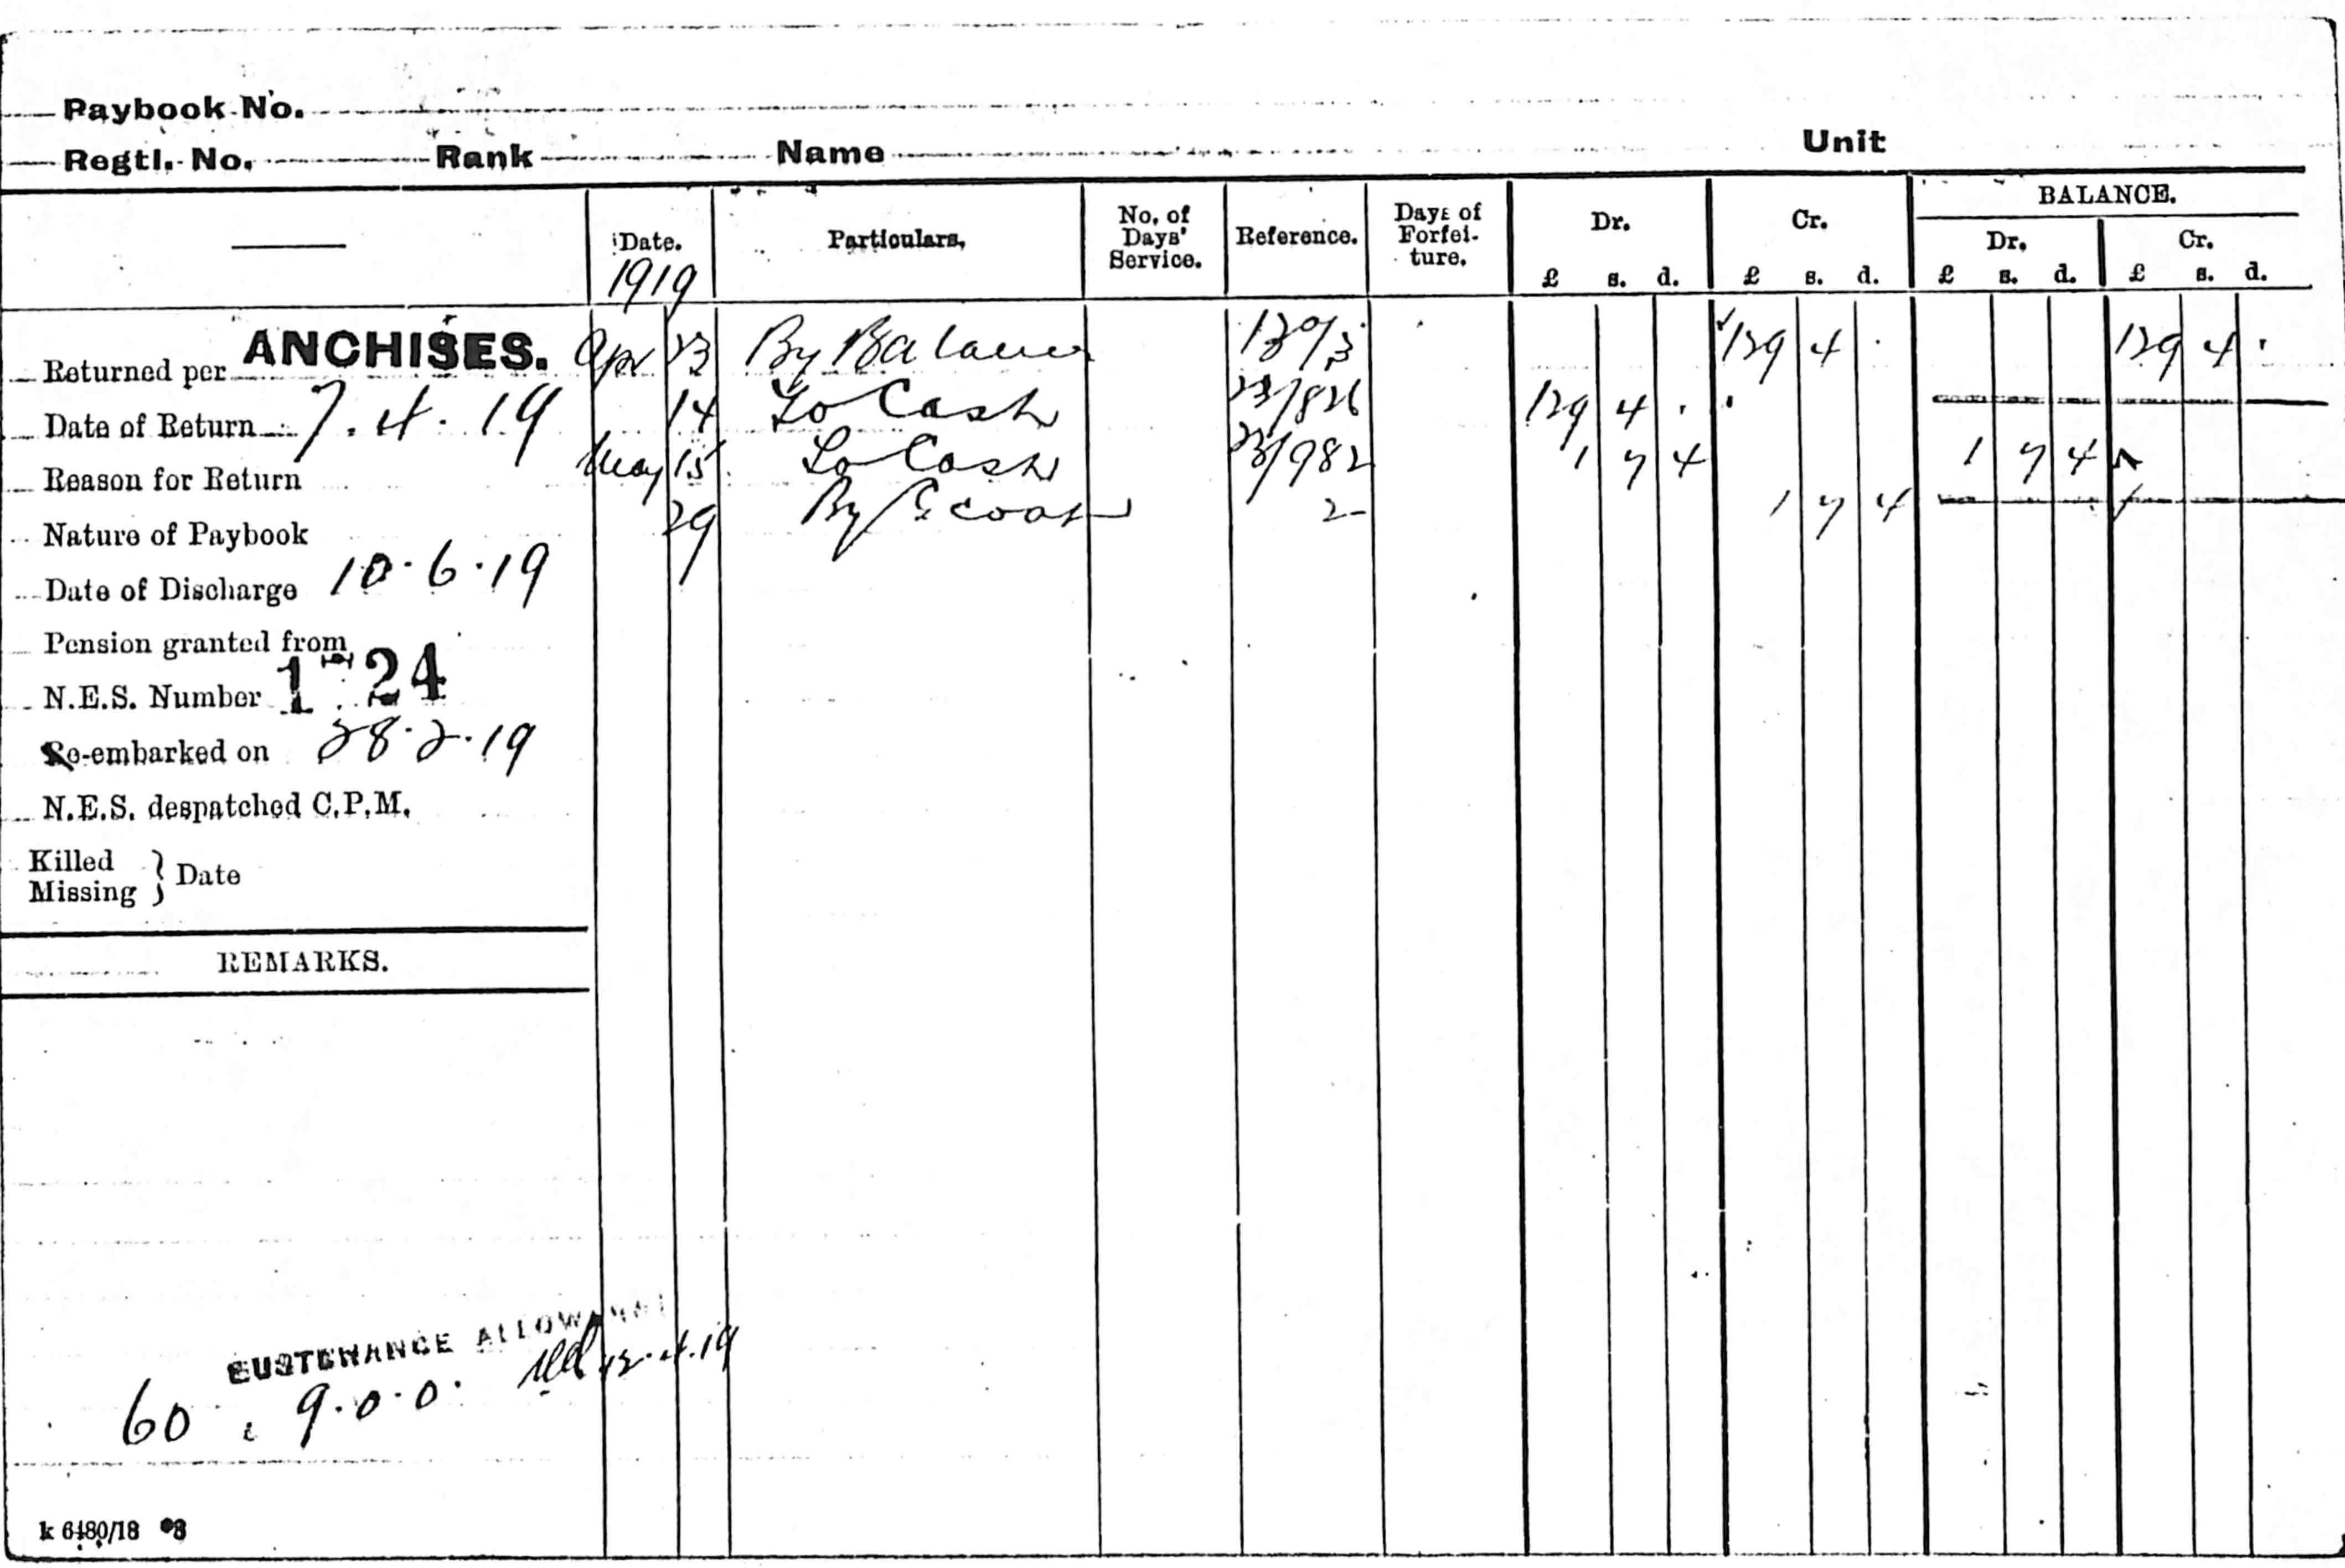 Paybook No.
Regtl. No. Rank Name Unit
Date. Particulars, No. of Days' Service. Reference. Days of Forfei-ture. Dr. Cr. BALANCE.
Dr. Cr.
£ s. d. £ s. d. £ s. d. £ s. d.
1919
Returned per ANCHISES. Apr 23 By Balance 129 4 . 129 4 .
Date of Return 7.4.19 14 To Cash 23/826 129 4 .
Reason for Return May 15 To Cash 23/982 1 7 4 1 7 4
Nature of Paybook 29 By 2 1 7 4
Date of Discharge 10.6.19
Pension granted from
N.E.S. Number 24
Re-embarked on 28.2.19
N.E.S. despatched C.P.M.
Killed
Missing } Date
REMARKS.
SUSTENANCE ALLOWANCE
60 9.0.0.
k 6480/18